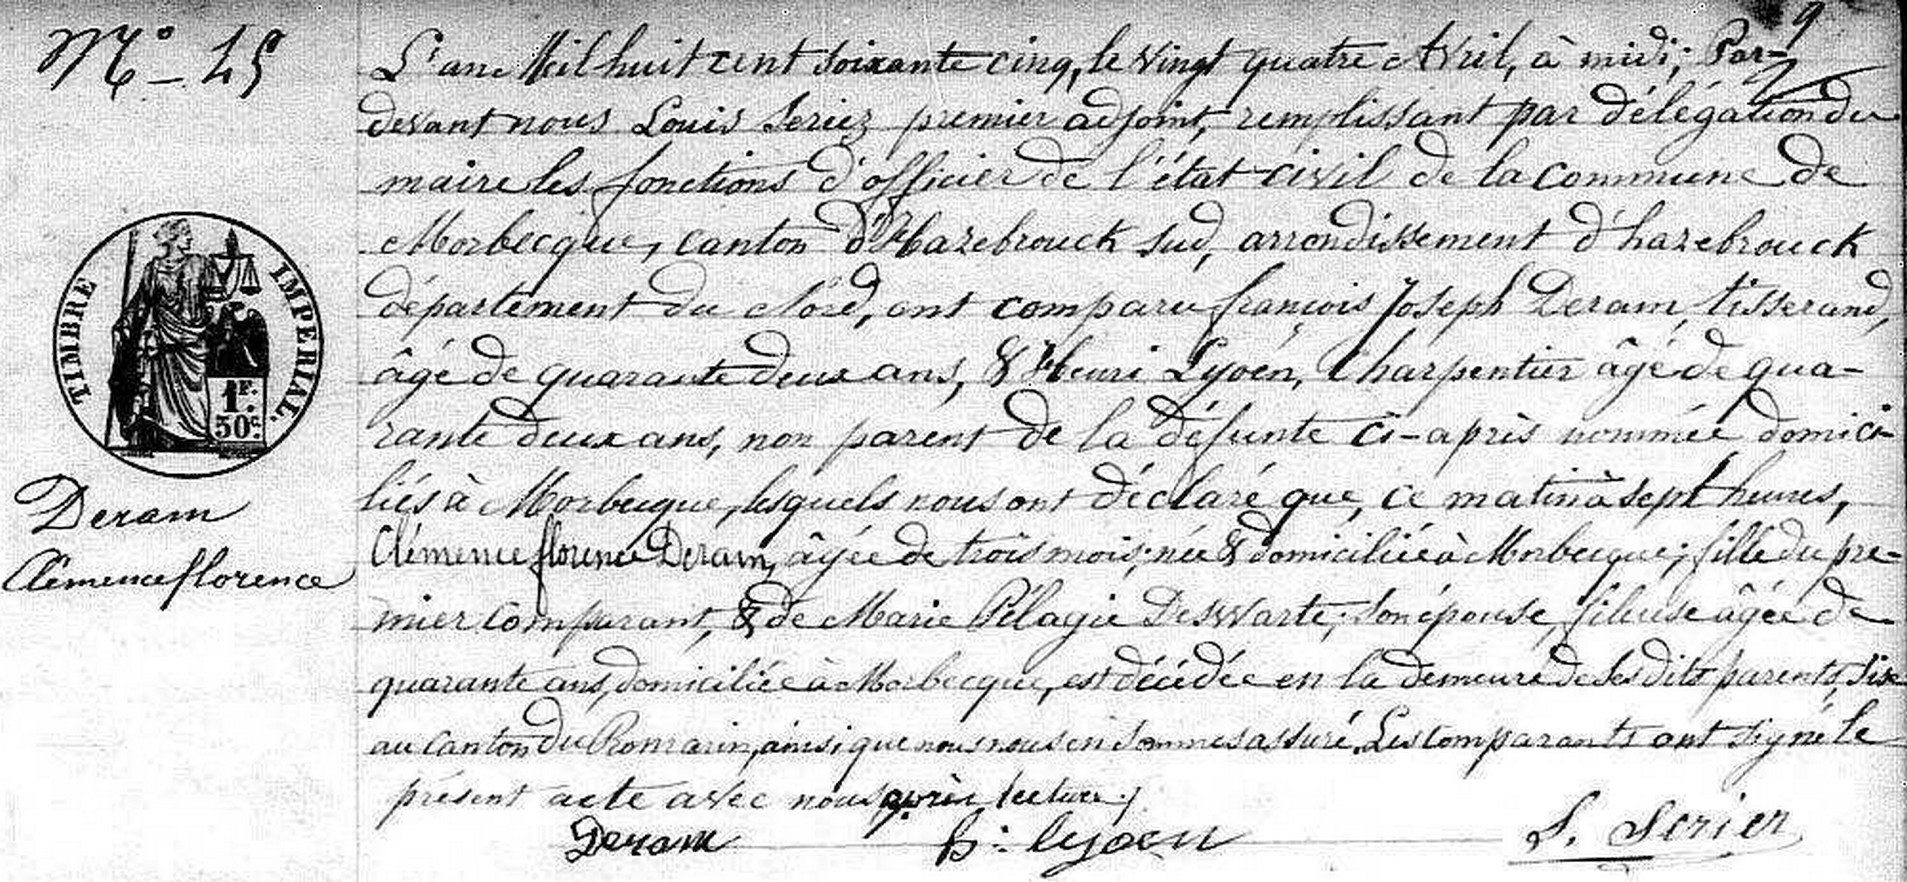 N° 45
9
L'an Mil huit cent soixante cinq, le vingt quatre Avril, à midi; Par-
devant nous Louis Seriez premier adjoint, remplissant par délégation du
maire les fonctions d'officier de l'état civil de la commune de
Morbecque, canton d'Hazebrouck sud, arrondissement d'hazebrouck
département du Nord, ont comparu françois Joseph Deram, tisserand,
âgé de quarante deux ans, & Henri Lyoën, Charpentier âgé de qua-
rante deux ans, non parent de la défunte ci-après nommée domici-
liés à Morbecque, lesquels nous ont déclaré que, ce matin à sept heures,
Clémence florence Deram, âgée de trois mois, née & domiciliée à Morbecque; fille du pre-
mier comparant, & de Marie Pélagie Deswarte, son épouse, fileuse âgée de
quarante ans, domiciliée à Morbecque, est décédée en la demeure de ses dits parents, sise
au canton du Romarin, ainsi que nous nous en sommes assuré. Les comparants ont signé le
présent acte avec nous après lecture./.
Deram h: lyoen L. Serier
TIMBRE IMPERIAL.
1F.
50c.
Deram
Clémence florence